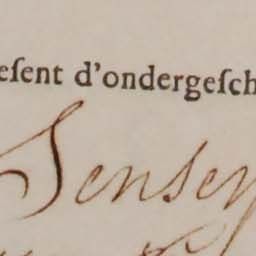 eſent d'ondergeſch
Sensey